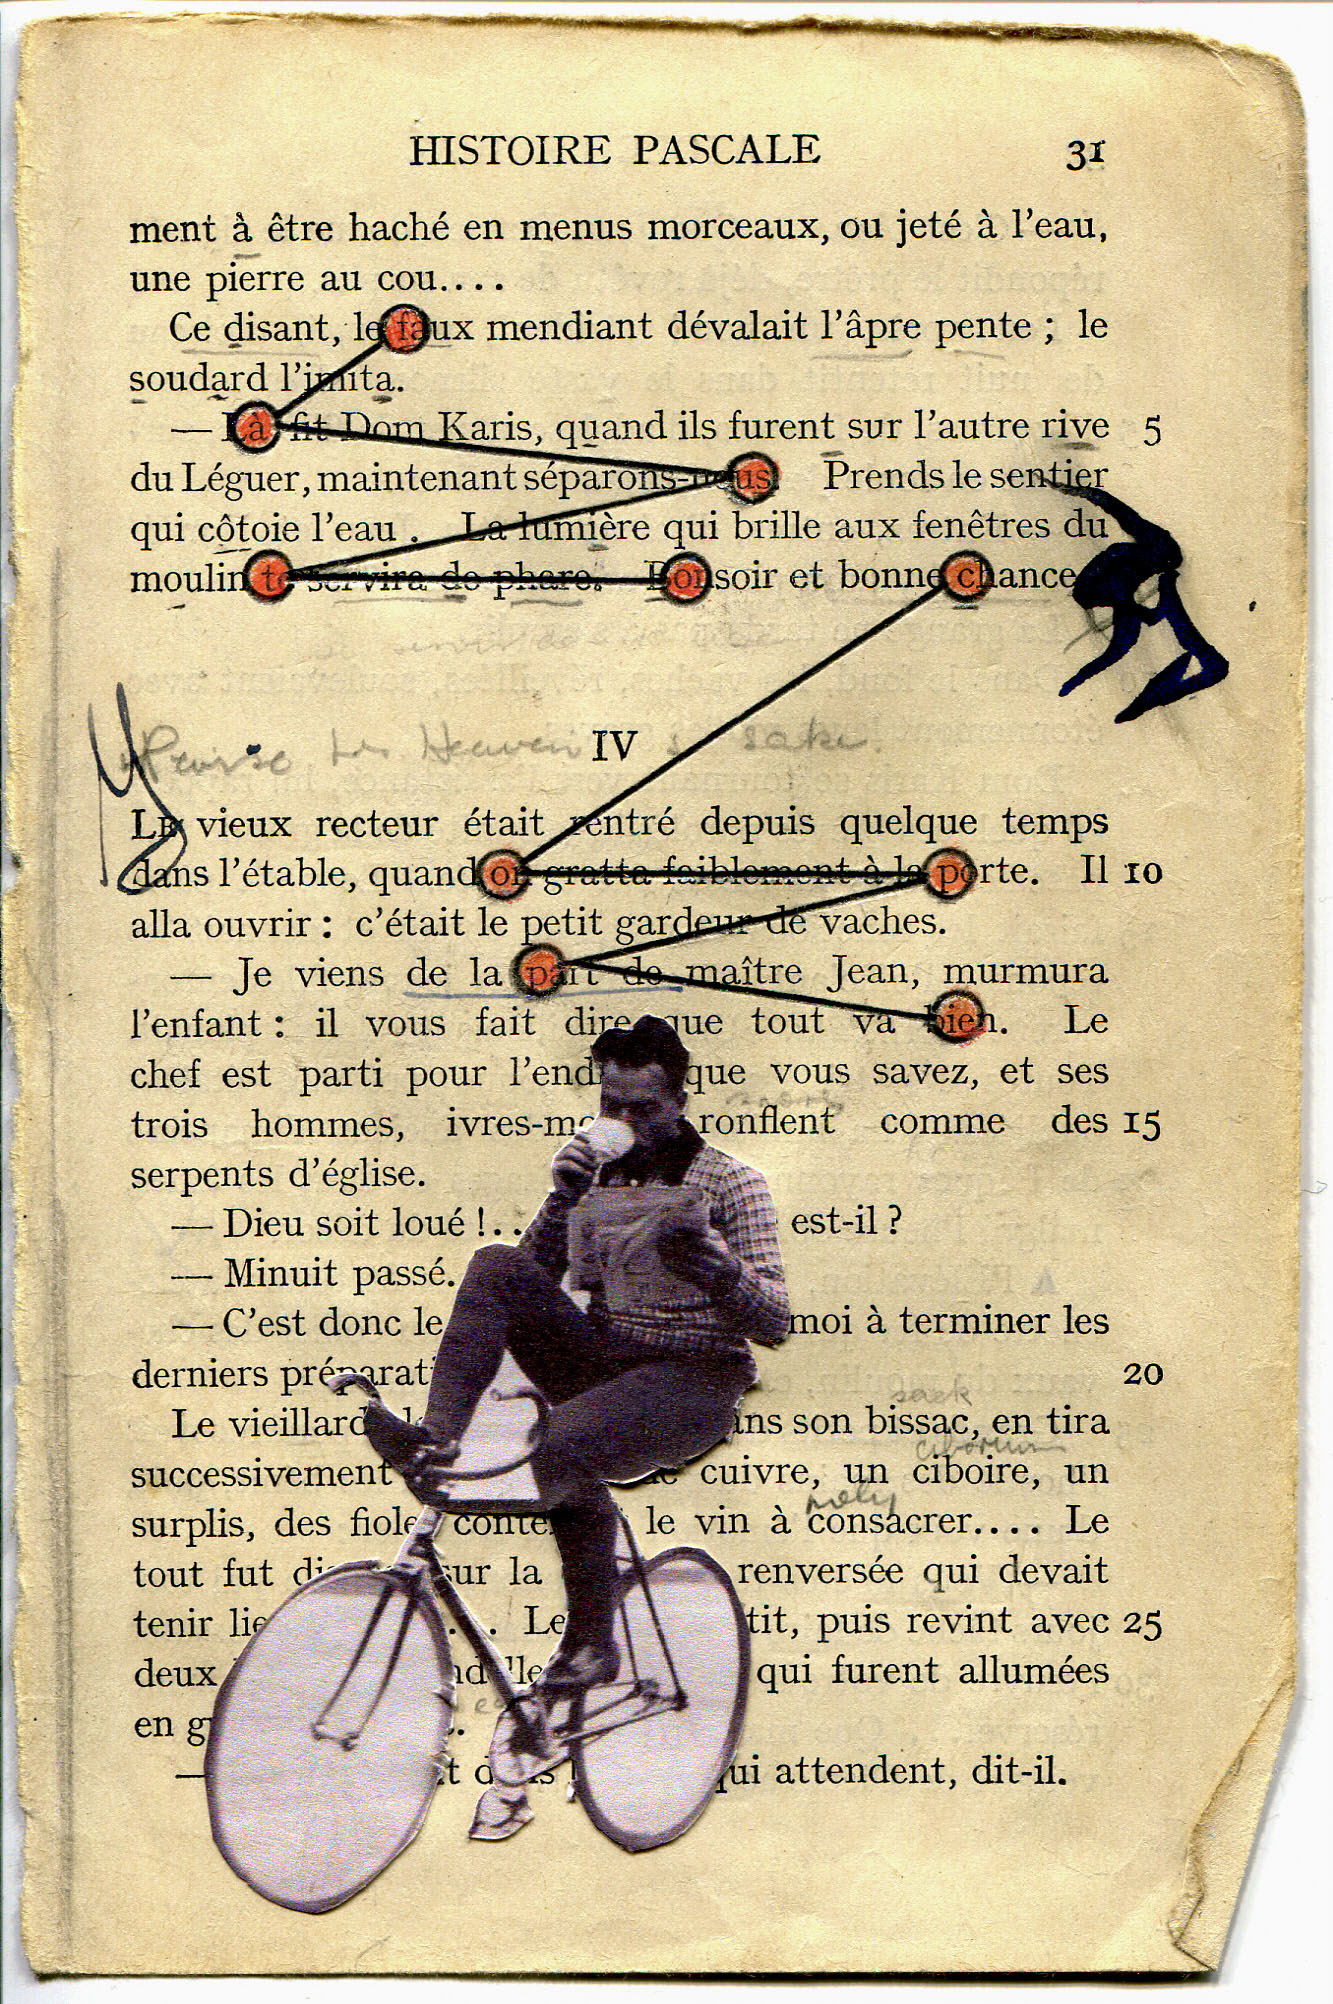 HISTOIRE PASCALE 31
ment à être haché en menus morceaux, ou jeté à l'eau,
une pierre au cou....
Ce disant, le faux mendiant dévalait l'âpre pente ; le
soudard l'imita.
— Là fit Dom Karis, quand ils furent sur l'autre rive 5
du Léguer, maintenant séparons-nous. Prends le sentier
qui côtoie l'eau . La lumière qui brille aux fenêtres du
moulin te servira de phare. Bonsoir et bonne chance
Praise be Heaven 's sake.
IV
LE vieux recteur était rentré depuis quelque temps
dans l'étable, quand on gratta faiblement à la porte. Il 10
alla ouvrir : c'était le petit gardeur de vaches.
— Je viens de la part de maître Jean, murmura
l'enfant : il vous fait dire que tout va bien. Le
chef est parti pour l'end que vous savez, et ses
trois hommes, ivres-mo ronflent comme des 15
serpents d'église.
— Dieu soit loué !.. est-il ?
— Minuit passé.
— C'est donc le moi à terminer les
derniers préparati 20
sack
Le vieillard ans son bissac, en tira
ciborium
successivement de cuivre, un ciboire, un
holy
surplis, des fiole conte le vin à consacrer.... Le
tout fut di sur la renversée qui devait
tenir lie ... Le tit, puis revint avec 25
deux ndelle qui furent allumées
en g
— t dans l qui attendent, dit-il.